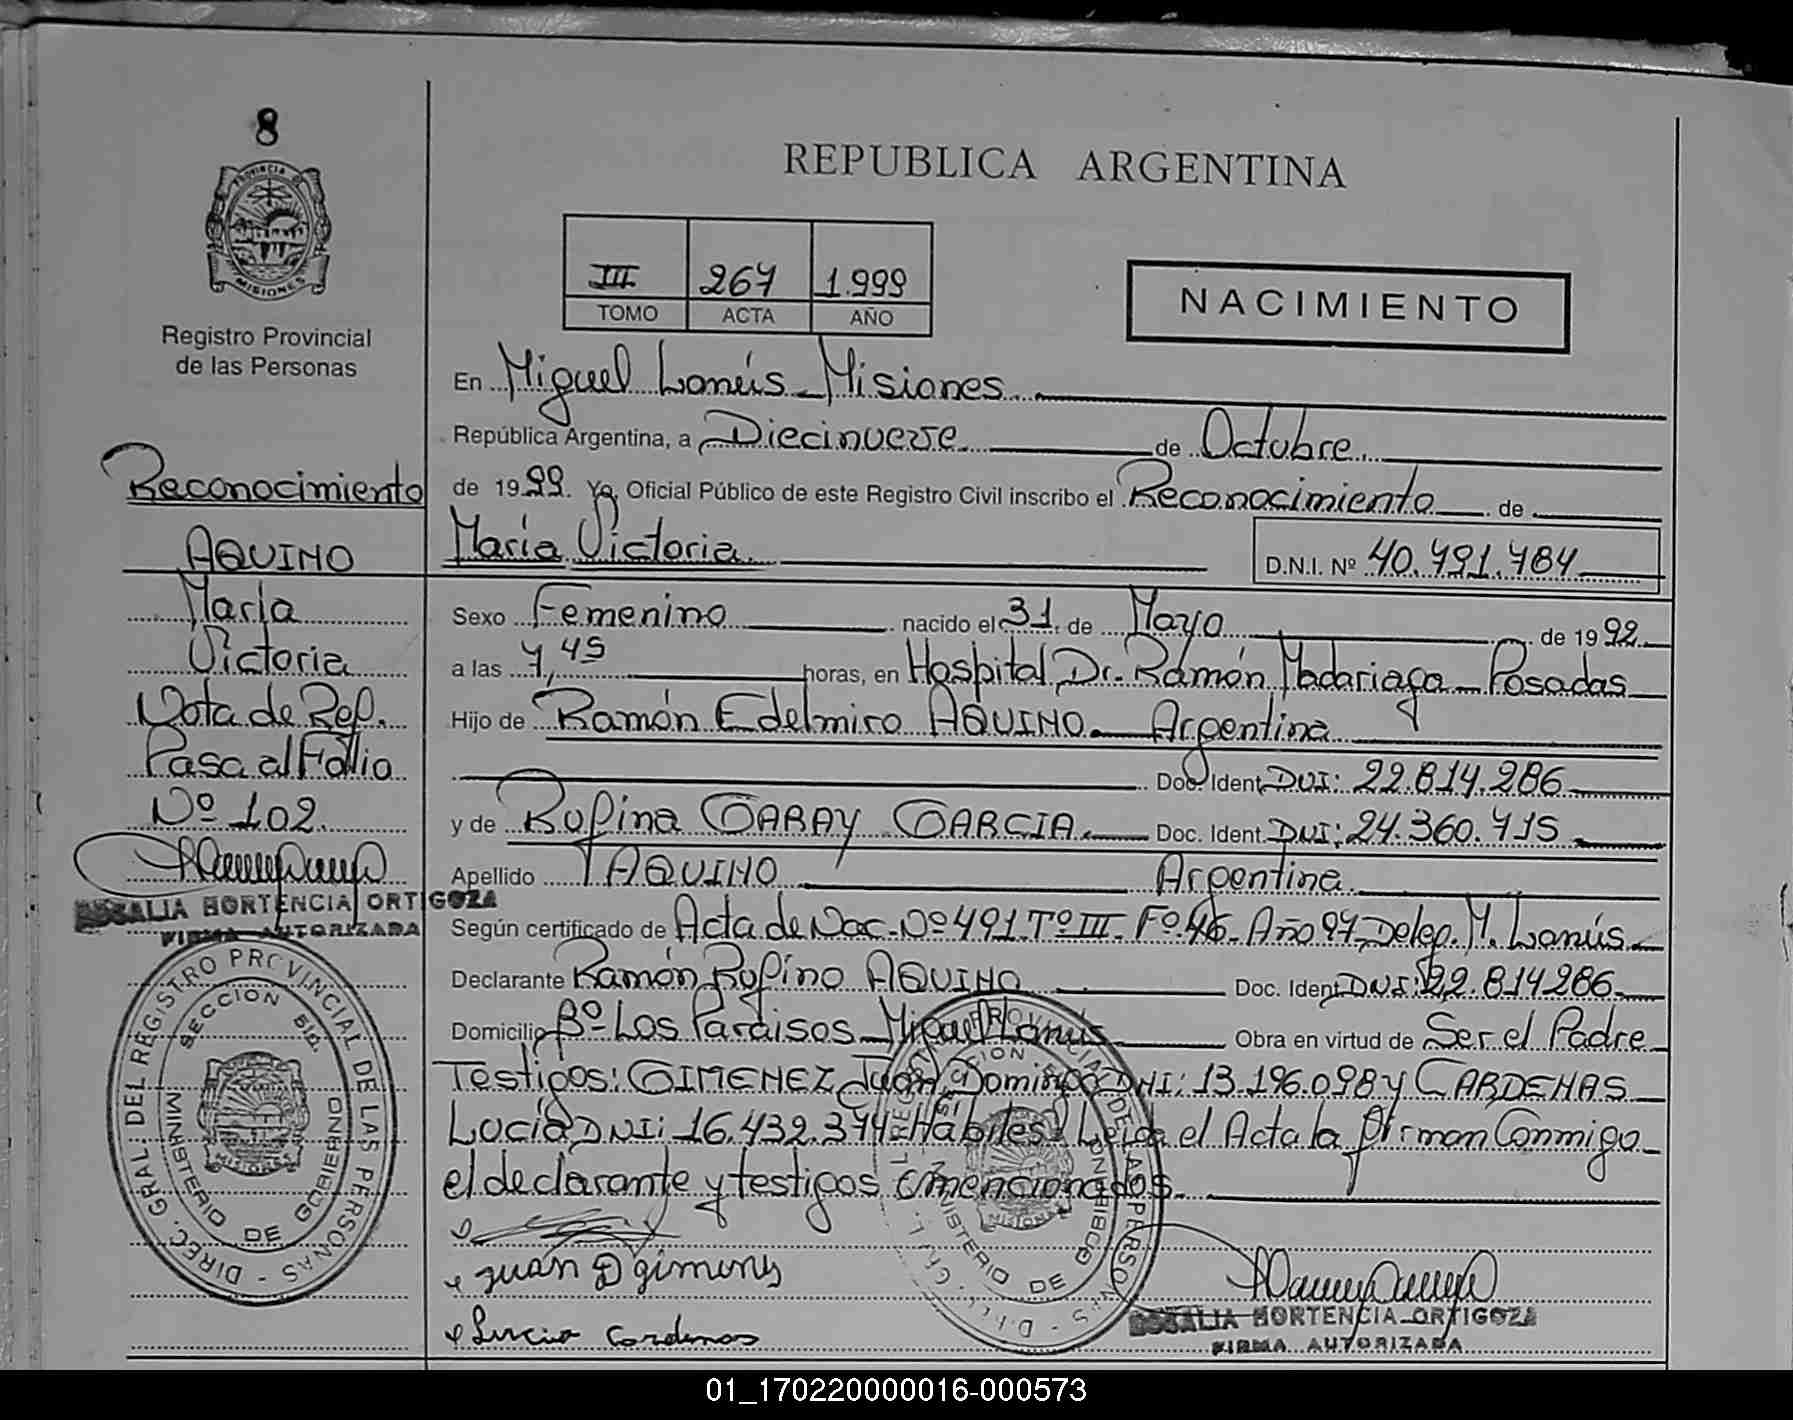 8
PROVINCIA DE
MISIONES
Registro Provincial
de las Personas
REPUBLICA ARGENTINA
III 267 1.999
TOMO ACTA AÑO
NACIMIENTO
En Miguel Lanús - Misiones
República Argentina, a Diecinueve de Octubre
de 1999. Yo, Oficial Público de este Registro Civil inscribo el Reconocimiento de
María Victoria D.N.I. Nº 40.791.784
Sexo Femenino nacido el 31 de Mayo de 1992
a las 7,45 horas, en Hospital Dr. Ramón Madariaga - Posadas
Hijo de Ramón Edelmiro AQUINO - Argentina
Doc. Ident. DNI: 22.814.286
y de Rufina GARAY GARCIA Doc. Ident. DNI: 24.360.715
Apellido AQUINO Argentina
Según certificado de Acta de Nac. Nº 491 Tº III Fº 46 - Año 97 Deleg. M. Lanús
Declarante Ramón Rufino AQUINO Doc. Ident. DNI: 22.814286
Domicilio Bº Los Paraisos Miguel Lanús Obra en virtud de Ser el Padre
Testigos: GIMENEZ Juan Domingo DNI: 13.196.098 y CARDENAS
Lucía DNI: 16.432.374 - Hábiles Leida el Acta la firman Conmigo
el declarante y testigos mencionados
Juan D gimenes
Lucia Cardenas
ROSALIA HORTENCIA ORTIGOZA
FIRMA AUTORIZADA
Reconocimiento
AQUINO
María
Victoria
Nota de Ref.
Pasa al Folio
Nº 102
ROSALIA HORTENCIA ORTIGOZA
FIRMA AUTORIZADA
DIREC. GRAL. DEL REGISTRO PROVINCIAL DE LAS PERSONAS
MINISTERIO DE GOBIERNO
MISIONES
01_170220000016-000573